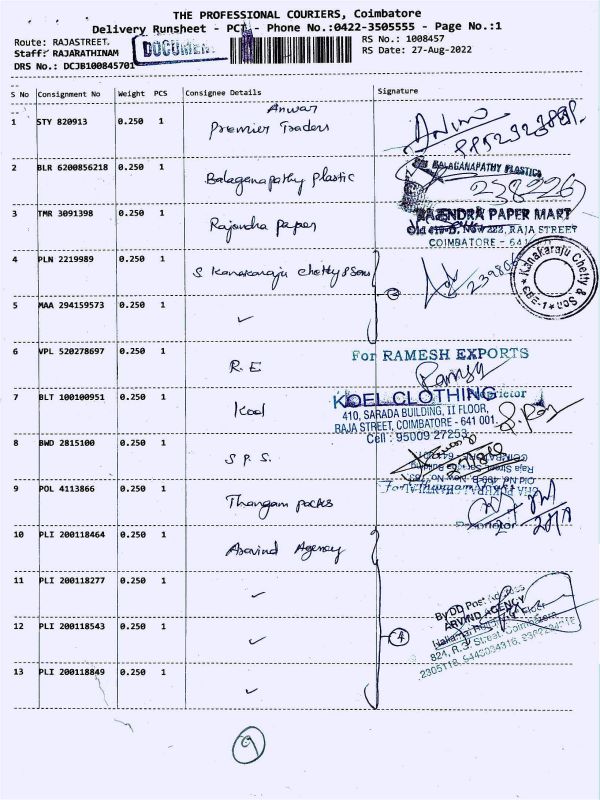 THE PROFESSIONAL COURIERS, Coimbatore
Delivery Runsheet - PCT - Phone No.:0422-3505555 - Page No.:1
Route: RAJASTREET,
DOCUMENT
RS No.: 1008457
Staff: RAJARATHINAM
RS Date: 27-Aug-2022
DRS No.: DCJB100845701
S No Consignment No Weight PCS Consignee Details Signature
Anwar
1 STY 820913 0.250 1 Premier Traders
2 BLR 6200856218 0.250 1 Balaganapathy Plastic
BALAGANAPATHY PLASTICS
238226
3 TMR 3091398 0.250 1 Rajendra paper
RAJENDRA PAPER MART
RAJA STREET
COIMBATORE - 641
4 PLN 2219989 0.250 1 S. Kanakaraju chetty & Sons
239806
Kanakaraju Chetty & Son
CBE-1
5 MAA 294159573 0.250 1 ✓
6 VPL 520278697 0.250 1 R. E
For RAMESH EXPORTS
Ramesh
Proprietor
7 BLT 100100951 0.250 1 Koel
KOEL CLOTHING
410, SARADA BUILDING, II FLOOR,
RAJA STREET, COIMBATORE - 641 001.
Cell : 95009 27253
8 BWD 2815100 0.250 1 S P. S.
9 POL 4113866 0.250 1 Thangam packs
Proprietor
10 PLI 200118464 0.250 1 Aravind Agency
11 PLI 200118277 0.250 1 ✓
12 PLI 200118543 0.250 1 ✓
4
By DD Post
ARVIND AGENCY
824, R.G. Street, Coimbatore
13 PLI 200118849 0.250 1 ✓
9